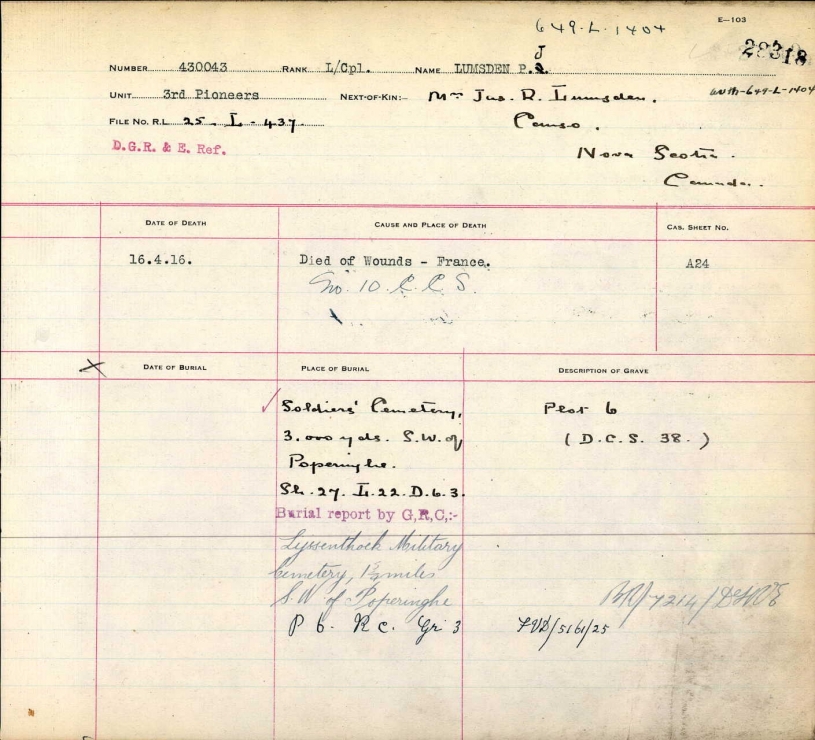 649-L-1404
E-103
28318
J
NUMBER 430043 RANK L/Cpl. NAME LUMSDEN P.
auth-649-L-1404
UNIT 3rd Pioneers NEXT-OF-KIN:- Mrs Jas. R. Lumsden.
FILE NO. R.L. 25-L-437 Canso.
D.G.R. & E. Ref.
Nova Scotia.
Canada.
DATE OF DEATH CAUSE AND PLACE OF DEATH CAS. SHEET NO.
16.4.16. Died of Wounds - France. A24
No. 10 C.C.S.
DATE OF BURIAL PLACE OF BURIAL DESCRIPTION OF GRAVE
Soldiers' Cemetery, Plot 6
3,000 yds. S.W. of (D.C.S. 38.)
Poperinghe.
Sh. 27. L.22.D.6.3.
Burial report by G,R,C,:-
Lyssenthoek Military
Cemetery, 1½ miles
S.W of Poperinghe
P 6. R c. Gr 3 FVD/5161/25